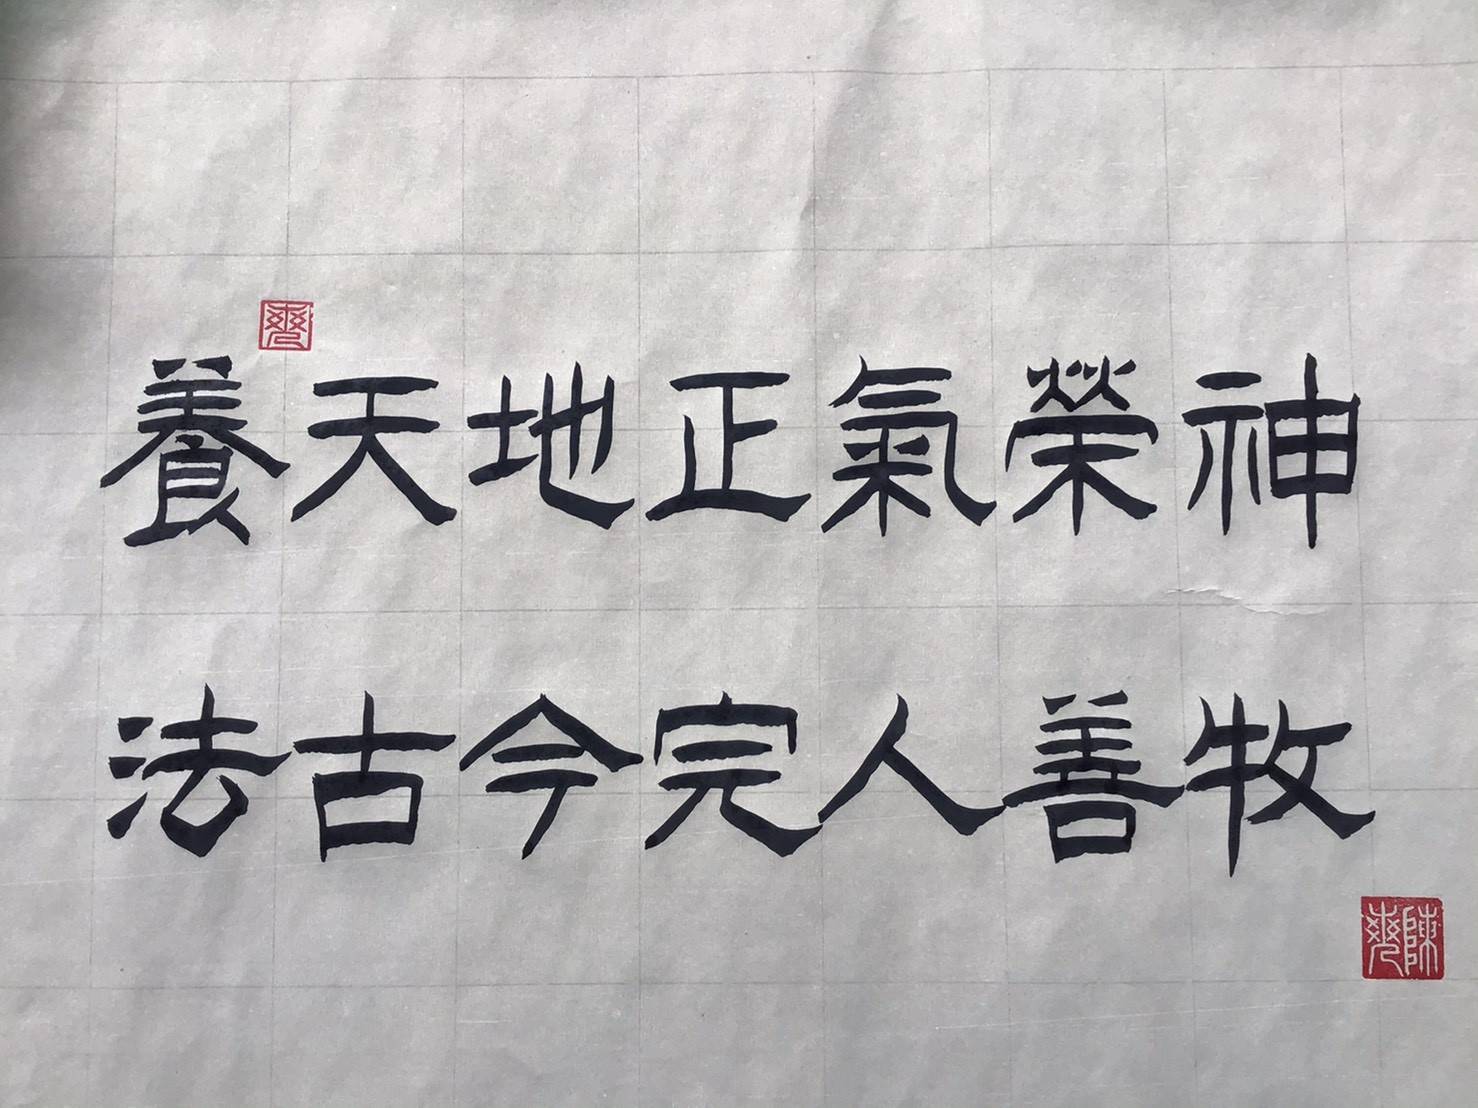 養天地正氣榮神
法古今完人善牧
陳